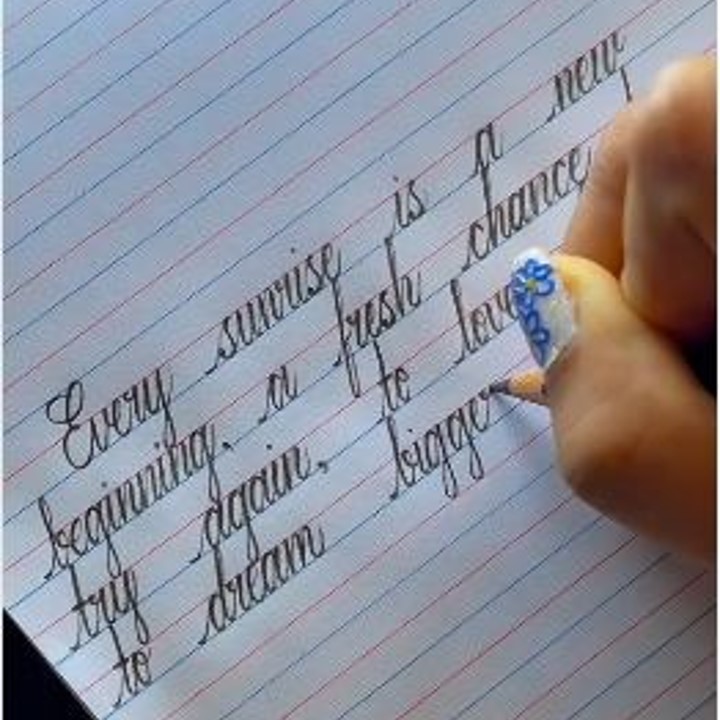 Every sunrise is a new
beginning, a fresh chance
try again, to love
to dream bigger